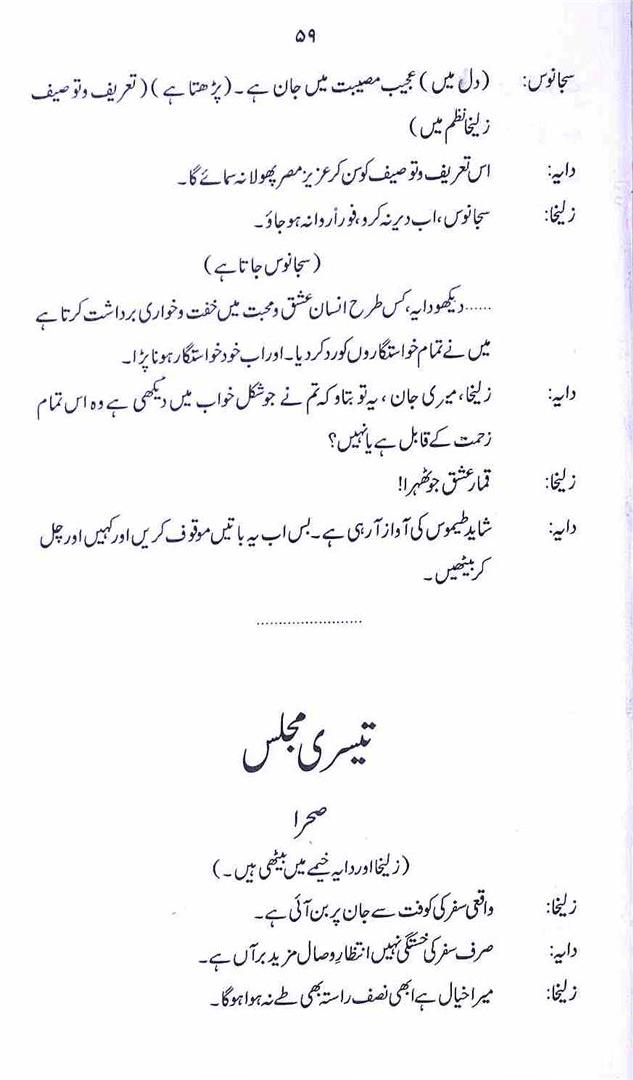 ۵۹
سجانوس: (دل میں) عجیب مصیبت میں جان ہے۔ (پڑھتا ہے) (تعریف و توصیف
زلیخا نظم میں)
دایہ: اس تعریف و توصیف کو سن کر عزیز مصر پھولا نہ سمائے گا۔
زلیخا: سجانوس، اب دیر نہ کرو، فوراً روانہ ہو جاؤ۔
(سجانوس جاتا ہے)
......دیکھو دایہ، کس طرح انسان عشق و محبت میں خفت و خواری برداشت کرتا ہے
میں نے تمام خواستگاروں کو رد کر دیا۔ اور اب خود خواستگار ہونا پڑا۔
دایہ: زلیخا، میری جان، یہ تو بتاو کہ تم نے جو شکل خواب میں دیکھی ہے وہ اس تمام
زحمت کے قابل ہے یا نہیں؟
زلیخا: قمار عشق جو ٹھہرا!
دایہ: شاید طیموس کی آواز آ رہی ہے۔ بس اب یہ باتیں موقوف کریں اور کہیں اور چل
کر بیٹھیں۔
........................
تیسری مجلس
صحرا
(زلیخا اور دایہ خیمے میں بیٹھی ہیں۔)
زلیخا: واقعی سفر کی کوفت سے جان پر بن آئی ہے۔
دایہ: صرف سفر کی خستگی نہیں انتظارِ وصال مزید برآں ہے۔
زلیخا: میرا خیال ہے ابھی نصف راستہ بھی طے نہ ہوا ہوگا۔